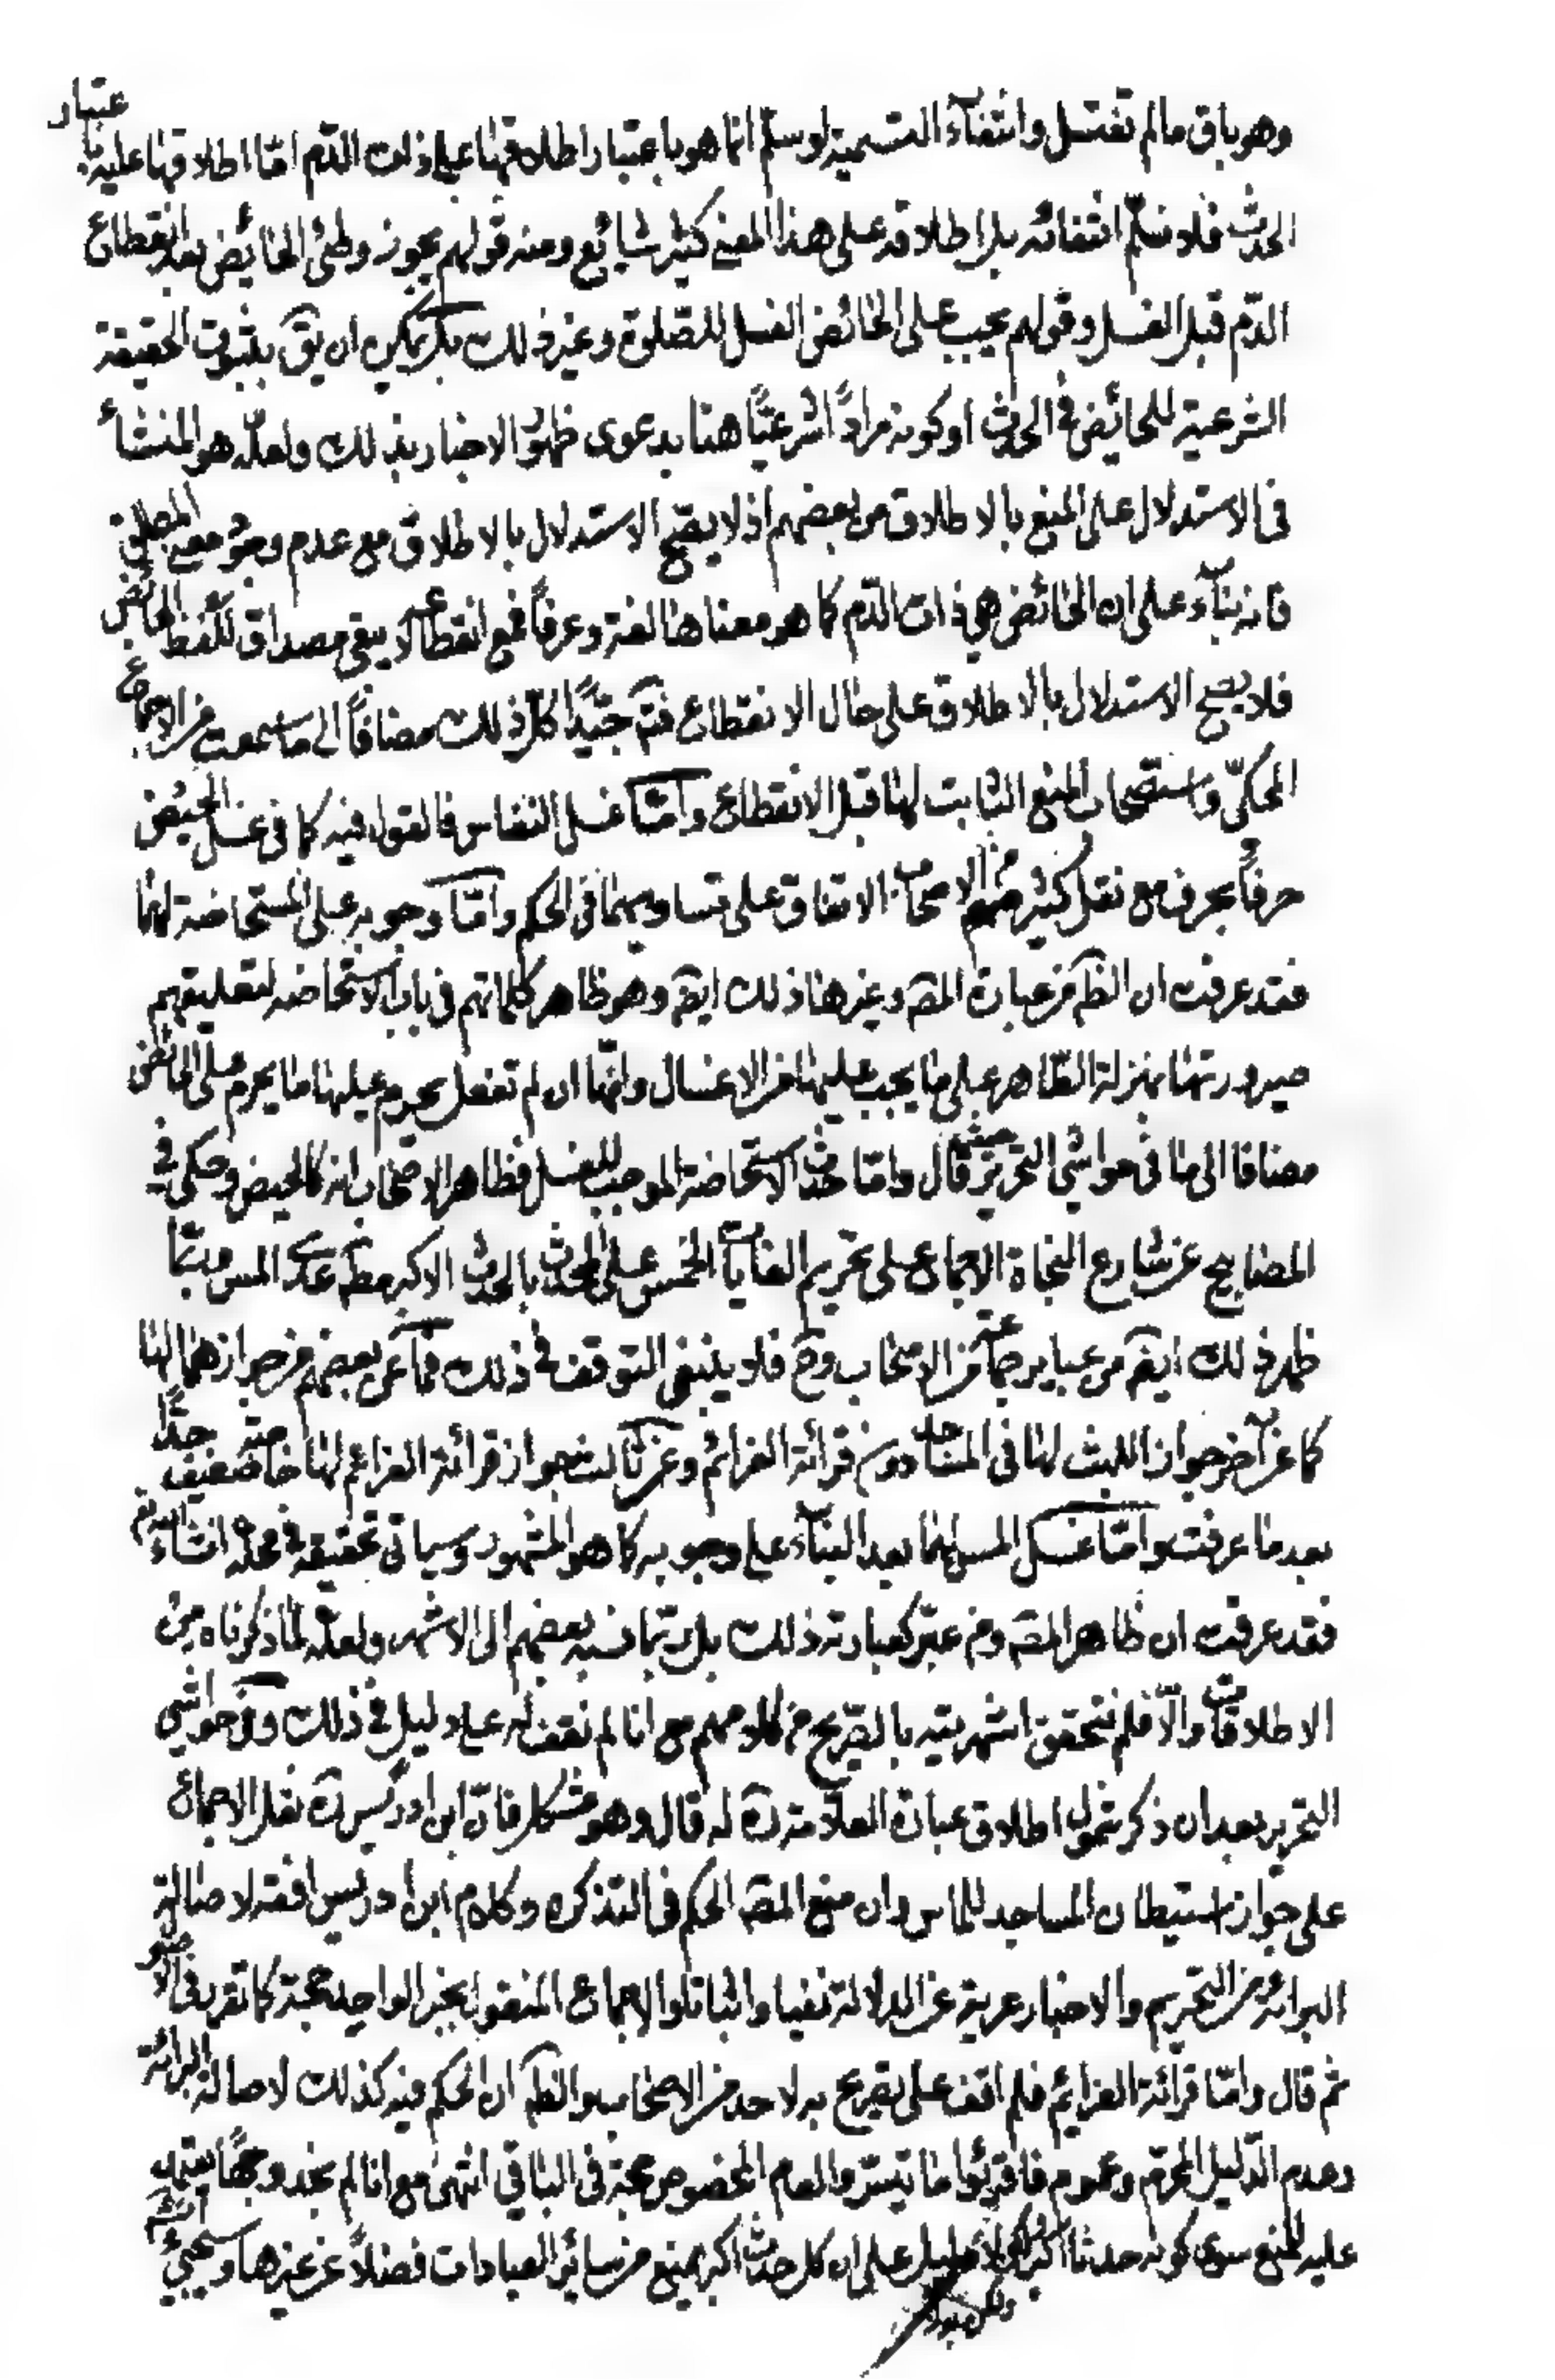 وهو باق ما لم تغتسل وانتفاء التسمية لو سلم انما هو باعتبار اطلاقها على ذات الدّم امّا اطلاقها عليه باعتبار
الحدث فلا نسلّم انتفائه بل اطلاقه على هذا المعنى كثير شايع ومنه قولهم يجوز وطئ الحائض بعد انقطاع
الدّم قبل الغسل وقولهم يجب على الحائض الغسل للصّلوة وغير ذلك بل يمكن ان يق بثبوت الحقيقة
الشرعية للحائض في الحدث او كونه مراداً شرعيّاً هنا بدعوى ظهور الاخبار بذلك ولعلّه هو المنشأ
في الاستدلال على المنع بالاطلاق من بعضهم اذ لا يصّح الاستدلال بالاطلاق مع عدم وجود معنى المطلق
فانه بناء على ان الحائض هي ذات الدّم كما هو معناها لغة وعرفاً فمع انقطاعه لا يبقى مصداق للفظ الحائض
فلا يصح الاستدلال بالاطلاق على حال الانقطاع فتم جيّداً كلّ ذلك مضافاً الى ما سمعت من الاجماع
المحكيّ واستصحاب المنع الثابت لها قبل الانقطاع وامّا غسل النفاس فالقول فيه كما في غسل الحيض
حرفاً بحرف مع نقل كثير منهم من الاصحاب الاتفاق على تساويهما في الحكم وامّا وجوبه على المستحاضة لها
فقد عرفت ان الظّ من عبارة المصّ وغيرها ذلك ايضّ وهو ظاهر كلماتهم في باب الاستحاضه لتعليقهم
صيرورتها بمنزلة الطّاهر على ما يجب عليها من الاغسال وانّها ان لم تفعل يحرم عليها ما يحرم على الحائض
مضافا الى ما في حواشي التحرير حيث قال وامّا حدث الاستحاضة الموجب للغسل فظاهر الاصحاب انه كالحيض وحكي في
المصابيح عن شارع النجاة الاجماع على تحريم الغايات الخمس على المحدث بالحدث الاكبر مطّ عدى المس وربّما
ظهر ذلك ايضّ من عباير جماعة من الاصحاب وح فلا ينبغى التوقف في ذلك فما عن بعضهم من جوازهما لها
كما عن آخر جواز اللبث لها في المساجد دون قرائة العزائم وعن ثالث جواز قرائة العزائم لها خاصّة ضعيف جدّاً
بعد ما عرفت وامّا غسل المس لهما بعد البناء على وجوبه كما هو المشهور وسياتي تحقيقه في محلّه انشاء الله تع
فقد عرفت ان ظاهر المصّ ومن عبّر كعبارته ذلك بل ربّما نسبه بعضهم الى الاشهر ولعلّه لما ذكرناه من
الاطلاقات والّا فلم نتحقق اشهريته بالتصريح من كلامهم مع انا لم نقف له على دليل في ذلك وفي حواشي
التحرير بعد ان ذكر شمول اطلاق عبارة العلّامة ره له قال وهو مشكل فانّ ابن ادريس ره نقل الاجماع
على جواز استيطان المساجد للماس وان منع المصّ الحكم في التذكره وكلام ابن ادريس افقه لاصالة
البرائة من التحريم والاخبار عرية عن الدلالة نفيا واثباتا والاجماع المنقول بخبر الواحد حجة كما تقرر في الاصول
ثم قال وامّا قرائة العزايم فلم اقف على تصريح به لاحد من الاصحاب والظّ ان الحكم فيه كذلك لاصالة البرائة
وعدم الدّليل المحرّم وعموم فاقرئوا ما تيسّر والعام المخصوص حجة في الباقي انتهى مع انا لم نجد وجهاً يعتمد
عليه للمنع سوى كونه حدثا اكبر ولا دليل على ان كل حدث اكبر يمنع من سائر العبادات فضلاً عن غيرها وسيجئ